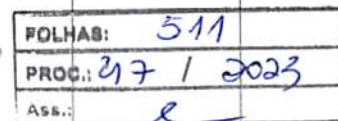 FOLHAS: 511
PROC.: 217 / 2023
Ass.: